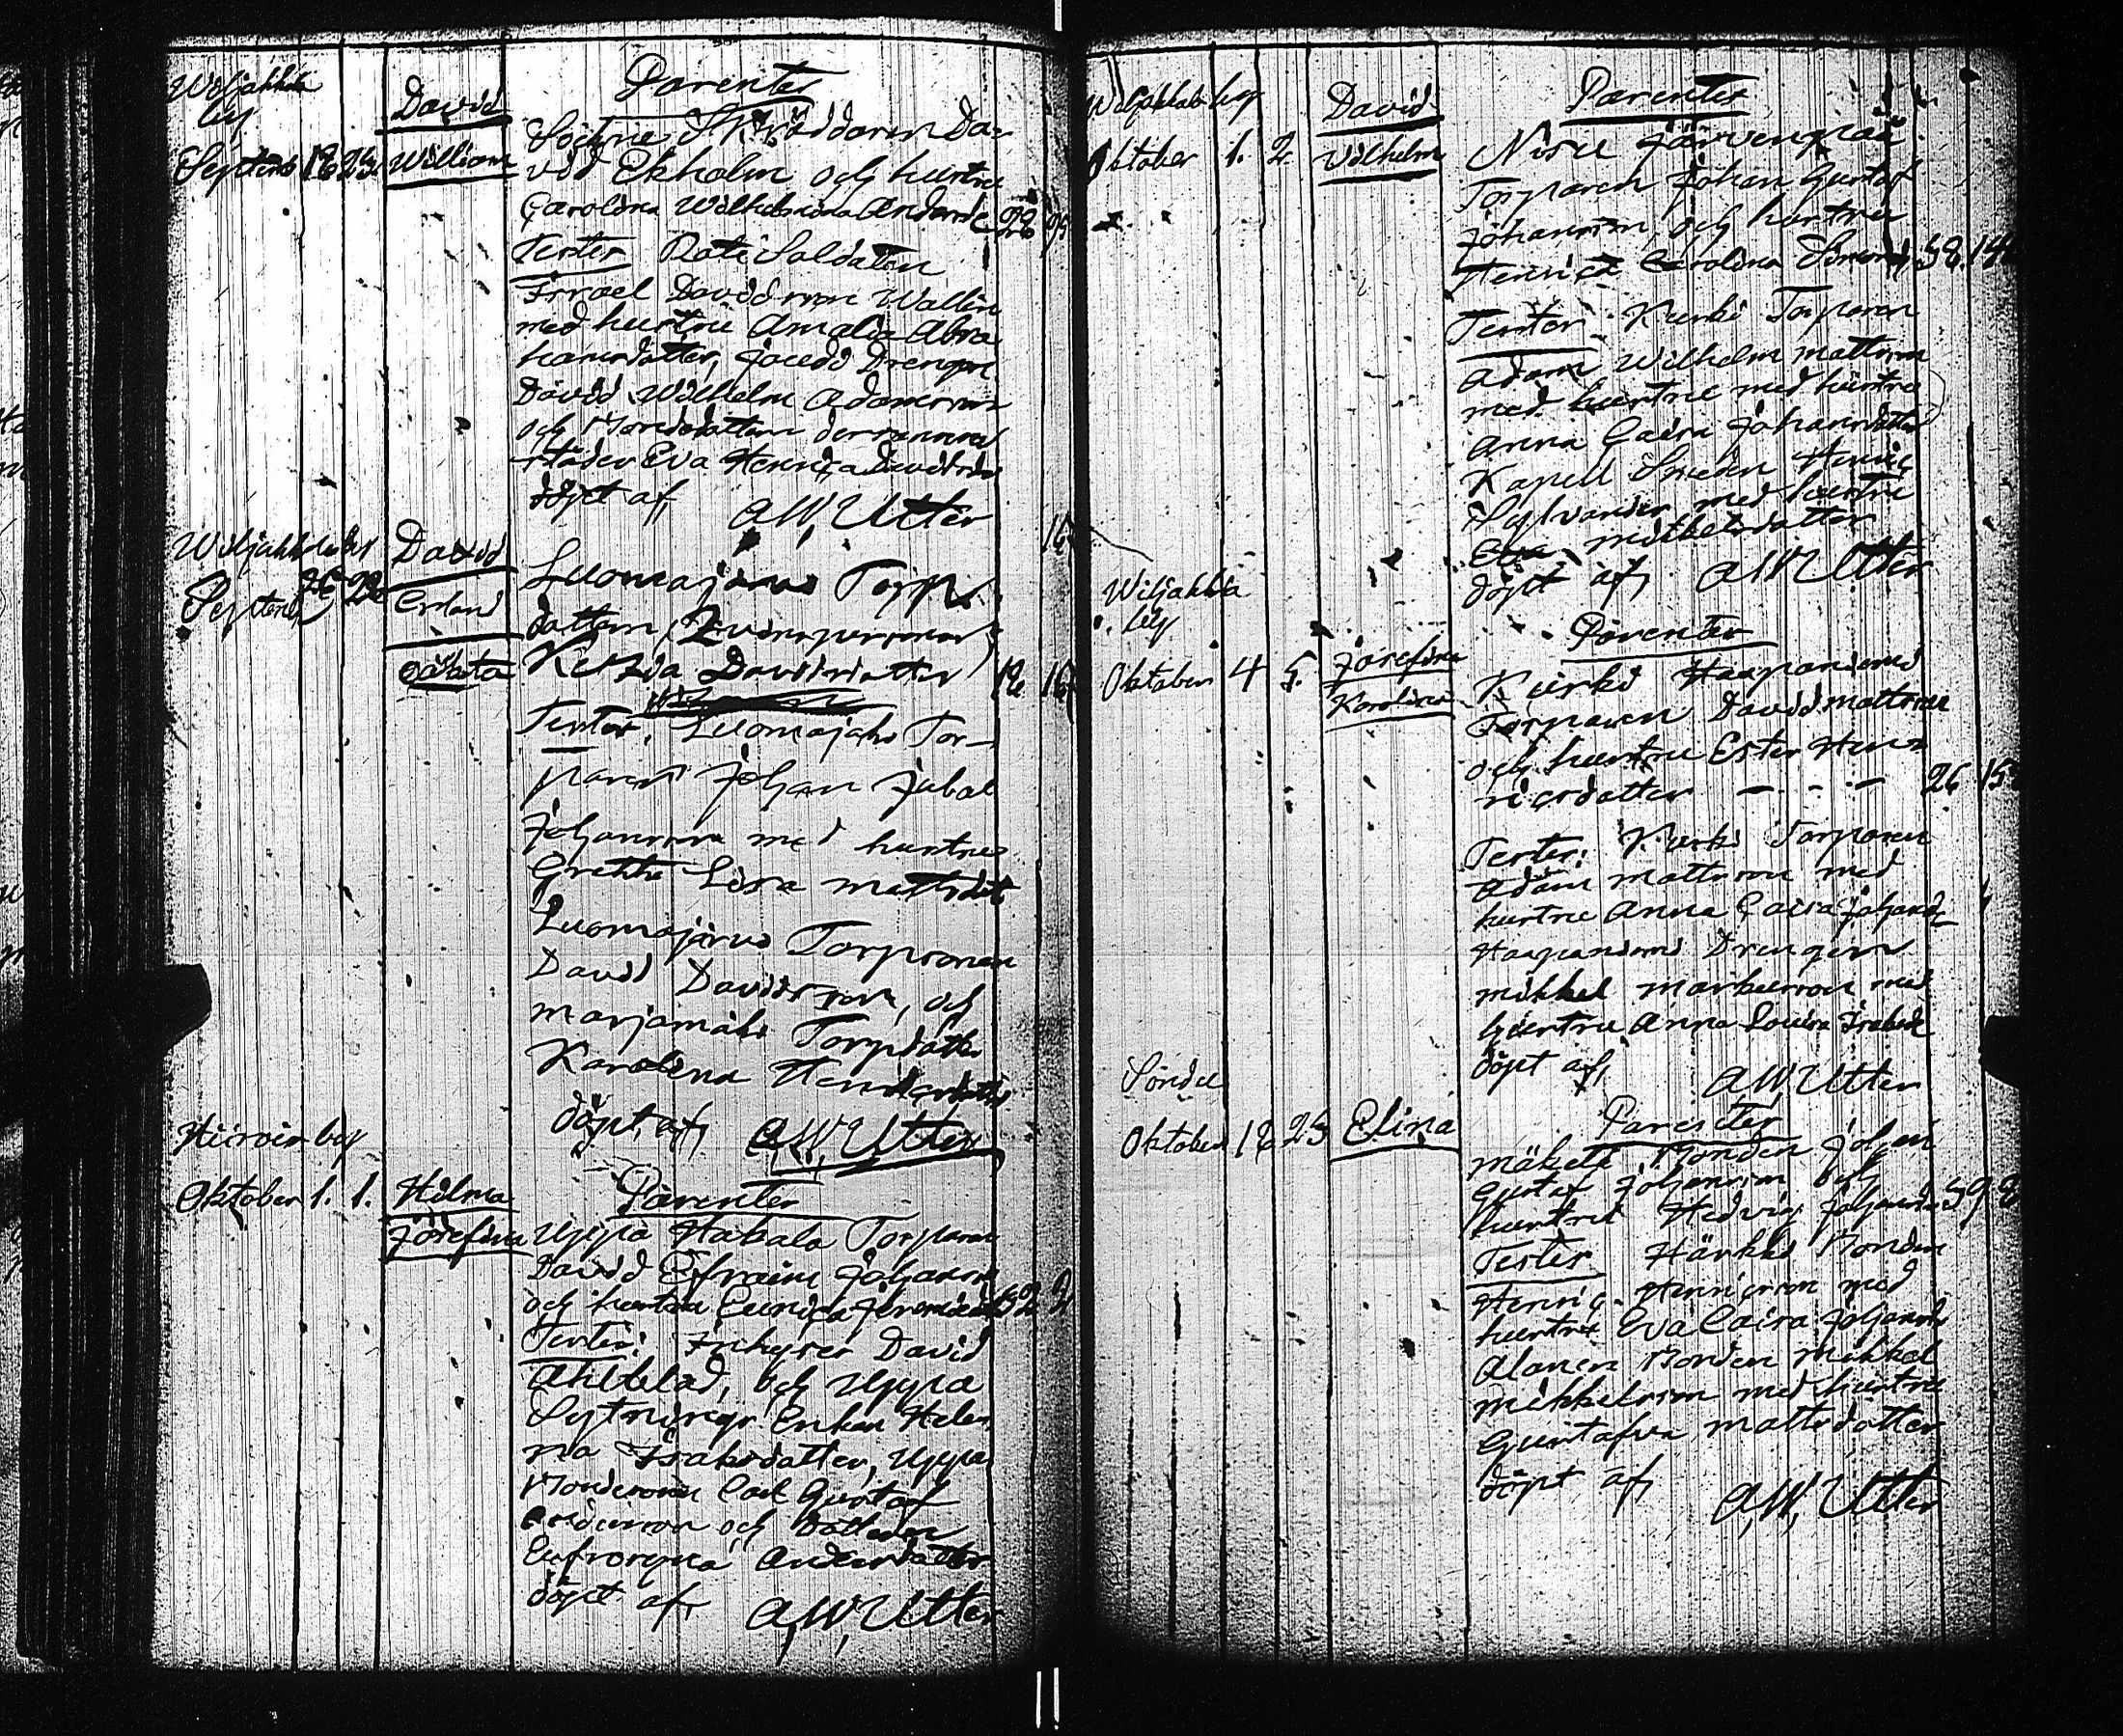 Wiljakkala
by
Septemb 18 23
David
William
Parenter
Skräddaren Da-
vid Ekholm och hustru
Carolina Wilhelmina Andersd
Tester Rote Soldaten
Israel Davidsson Wallin
med hustru Amalia Abra
hamsdotter, Drengen
David Wilhelm Adamsson
och
Eva Henrica Davidsdr
döpt af A.W. Utter
Wiljakkala by
Septemb 22
David
Erland
oäkta
Luomajärvi Torp
dottern
Davidsdotter
Tester, Luomajoki Tor-
paren Johan Jubal
Johansson med hustru
Gretha Lisa Mattsdotr
Luomajärvi Torparen
David Davidsson, och
Marjamäki Torpdottr
Karolina Henricsdottr
döpt af A.W. Utter
Hiirois by
Oktober 1. 1.
Hilma
Josefina
Parenter
Uppa Hakala Torparen
David Efraim Johansson
och hustru Eunica Jeremiasd 32
Tester: Inhyses David
Ahlblad, och Uppa
Enkan Hele-
na Isaksdotter, Uppa
Carl Gustaf
Andersson och Dottern
Eufrosyna Andersdotter
döpt af A.W. Utter
Wiljakkala by
Oktober 1. 2.
David
Vilhelm
Parenter
Järvenpää
Torparen Johan Gustaf
Johansson och hustru
Henrica Carolina Simonsd 38. 14
Tester Kurki Torparen
Adam Wilhelm Mattsson
med hustru med hustru
Anna Caisa Johansdotter
Kapell Smeden Henric
Sylvander med hustru
Eva Mikkelsdotter
döpt af A.W. Utter
Wiljakkala
by
Oktober 4 5.
Josefina
Karolina
Parenter
Kurki Haapaniemi
Torparen David Mattsson
och hustru Ester Hen-
ricsdotter - - - 26 15
Tester: Kurki Torparen
Adam Mattsson med
hustru Anna Caisa Johansdr
Haapaniemi Drengen
Mikkel Markusson med
hustru Anna Lovisa Isaksdr
döpt af A.W. Utter
Oktober 18 25
Elina
Parenter
Mäkelä Bonden Johan
Gustaf Johansson och
hustru Hedvig Johansdr 39 8
Tester Härkki Bonden
Henric Henricsson med
hustru Eva Caisa Johansdr
Alanen Bonden Mikkel
Mikkelsson med hustru
Gustafva Mattsdotter
döpt af A.W. Utter